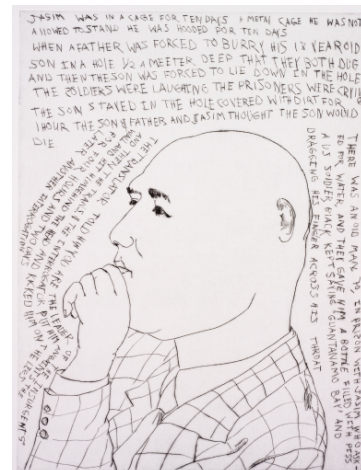 JASIM WAS IN A CAGE FOR TEN DAYS A METAL CAGE HE WAS NOT
ALLOWED TO STAND HE WAS HOODED FOR TEN DAYS
WHEN A FATHER WAS FORCED TO BURRY HIS 13 YEAR OLD
SON IN A HOLE 1/2 A MEETER DEEP THAT THEY BOTH DUG
AND THEN THE SON WAS FORCED TO LIE DOWN IN THE HOLE
THE SOLDIERS WERE LAUGHING THE PRISONERS WERE CRYIN
THE SON STAYED IN THE HOLE COVERED WITH DIRT FOR
1 HOUR THE SON & FATHER AND JASIM THOUGHT THE SON WOULD
DIE
THE TRANSLATOR TOLD HIM YOU ARE THE LEADER OF
AND THEN THE
FOR
LATER
ANOTHER INTERROGATION
TWO
KICKED HIM
HE
THE
INSURGENTS
THERE WAS AN OLD MAN 70, IN PRIZON WITH JASIM WHO ASK
ED FOR WATER, AND THEY GAVE HIM A BOTTLE FILLED WITH PISS
A US SOLDIER BLACK KEPT SAYING 'GUANTANAMO BAY' AND
DRAGGING HIS FINGER ACROSS HIS THROAT